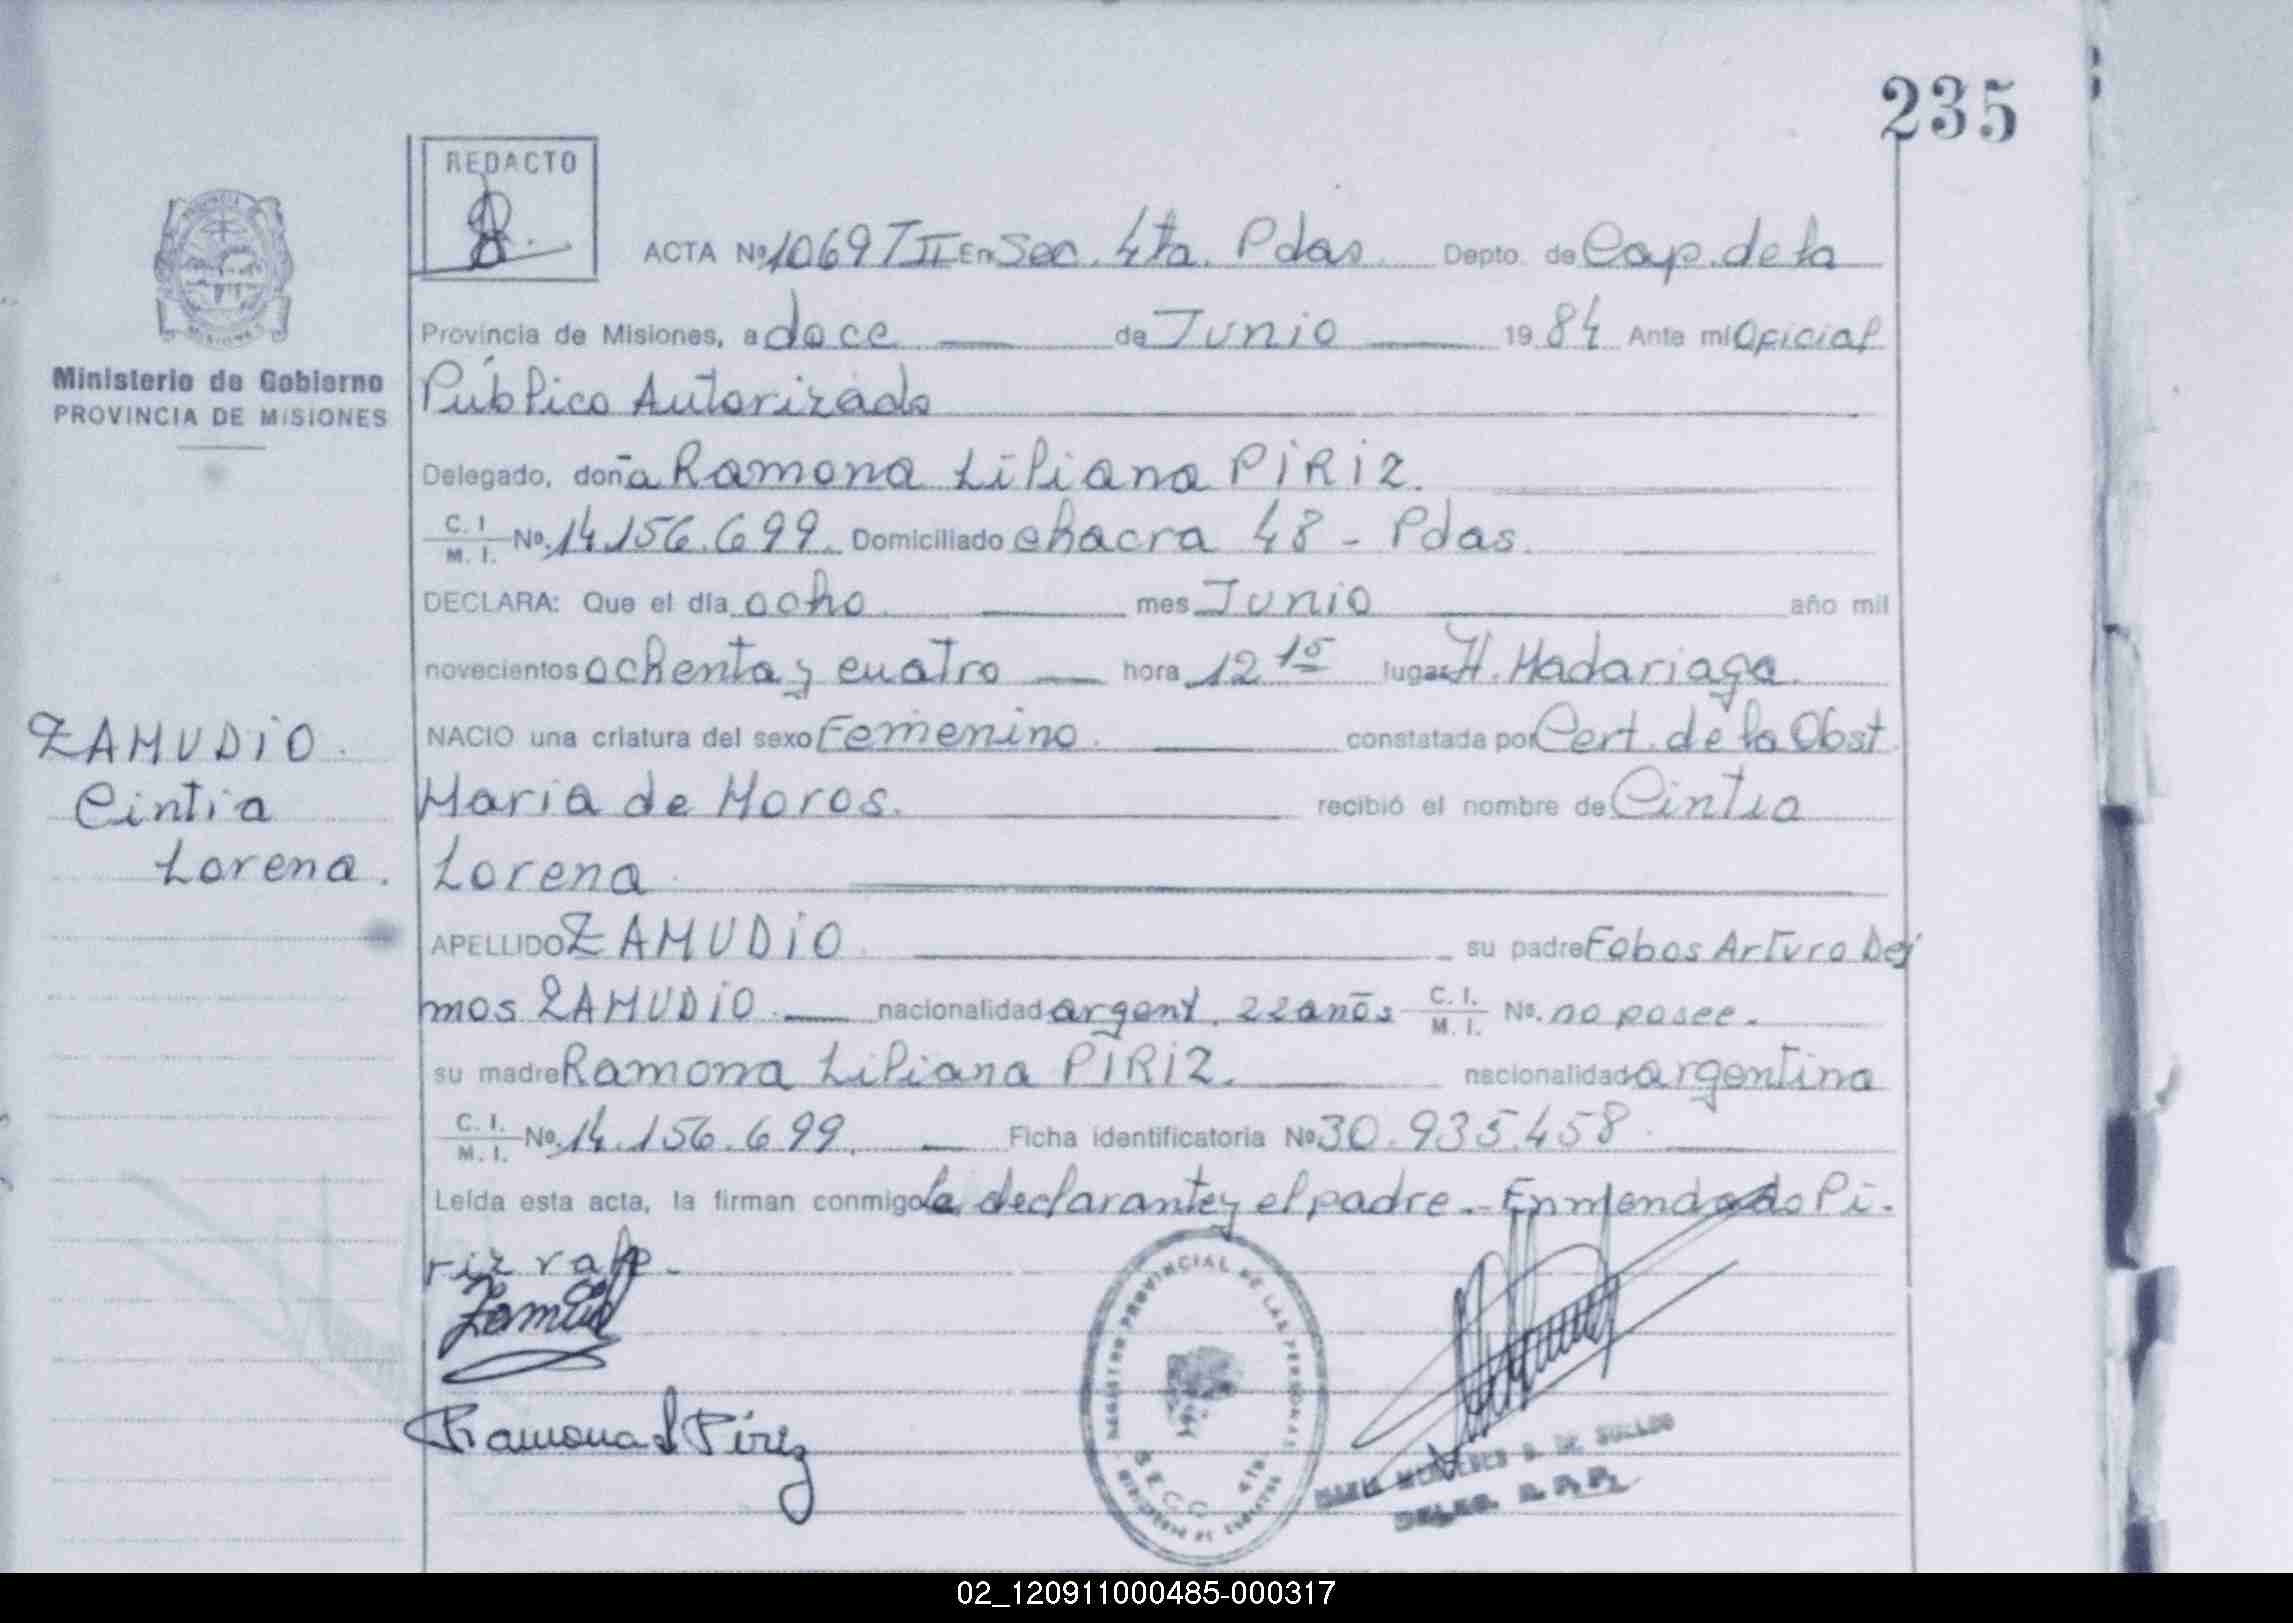 235
REDACTO
ACTA Nº 1069 T II En Sec. 4ta. Pdas. Depto. de Cap. de la
Provincia de Misiones, a doce de Junio 1984 Ante mi Oficial
Ministerio de Gobierno
PROVINCIA DE MISIONES
Público Autorizado
Delegado, doña Ramona Liliana PIRIZ.
C. I. / M. I. Nº. 14.156.699. Domiciliado chacra 48 - Pdas.
DECLARA: Que el día ocho mes Junio año mil
novecientos ochenta y cuatro hora 12 15 lugar H. Madariaga.
ZAMUDIO.
Cintia
Lorena.
NACIO una criatura del sexo Femenino. constatada por Cert. de la Obst
Maria de Moros. recibió el nombre de Cintia
Lorena
APELLIDO ZAMUDIO su padre Fobos Arturo Dei
mos ZAMUDIO. nacionalidad argent. 22 años C. I. / M. I. Nº. no posee.
su madre Ramona Liliana PIRIZ. nacionalidad argentina
C. I. / M. I. Nº. 14.156.699. Ficha identificatoria Nº 30.935.458.
Leída esta acta, la firman conmigo la declarante y el padre.- Enmendado Pi.
riz vale.-
Ramona L Píriz
REGISTRO PROVINCIAL DE LAS PERSONAS
SECC. 4ta
02_120911000485-000317